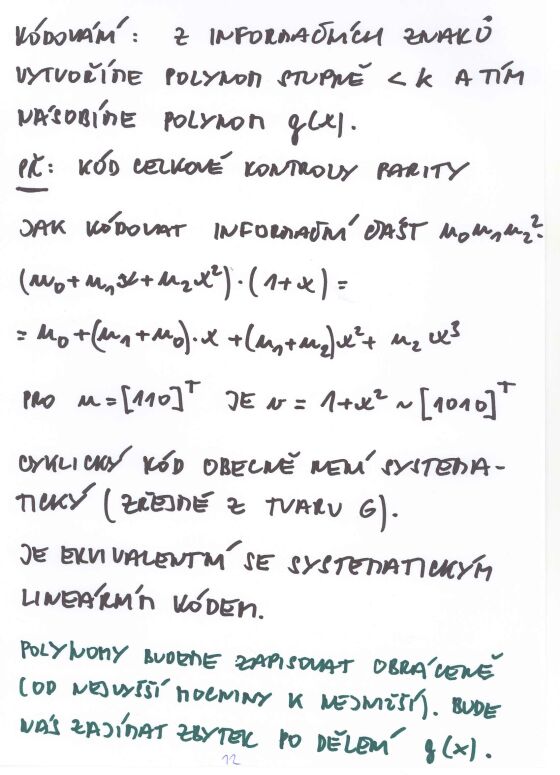 KÓDOVÁNÍ: Z INFORMAČNÍCH ZNAKŮ
VYTVOŘÍME POLYNOM STUPNĚ < K A TÍM
NÁSOBÍME POLYNOM g(x).
PŘ: KÓD CELKOVÉ KONTROLY PARITY
JAK KÓDOVAT INFORMAČNÍ ČÁST u₀u₁u₂.
(u₀+u₁x+u₂x²)·(1+x) =
= u₀+(u₁+u₀)·x+(u₁+u₂)x²+ u₂x³
PRO u=[110]ᵀ JE v = 1+x² ~ [1010]ᵀ
CYKLICKÝ KÓD OBECNĚ NENÍ SYSTEMA-
TICKÝ (ZŘEJMÉ Z TVARU G).
JE EKVIVALENTNÍ SE SYSTEMATICKÝM
LINEÁRNÍM KÓDEM.
POLYNOMY BUDEME ZAPISOVAT OBRÁCENĚ
(OD NEJVYŠŠÍ MOCNINY K NEJNIŽŠÍ). BUDE
NÁS ZAJÍMAT ZBYTEK PO DĚLENÍ g(x).
12